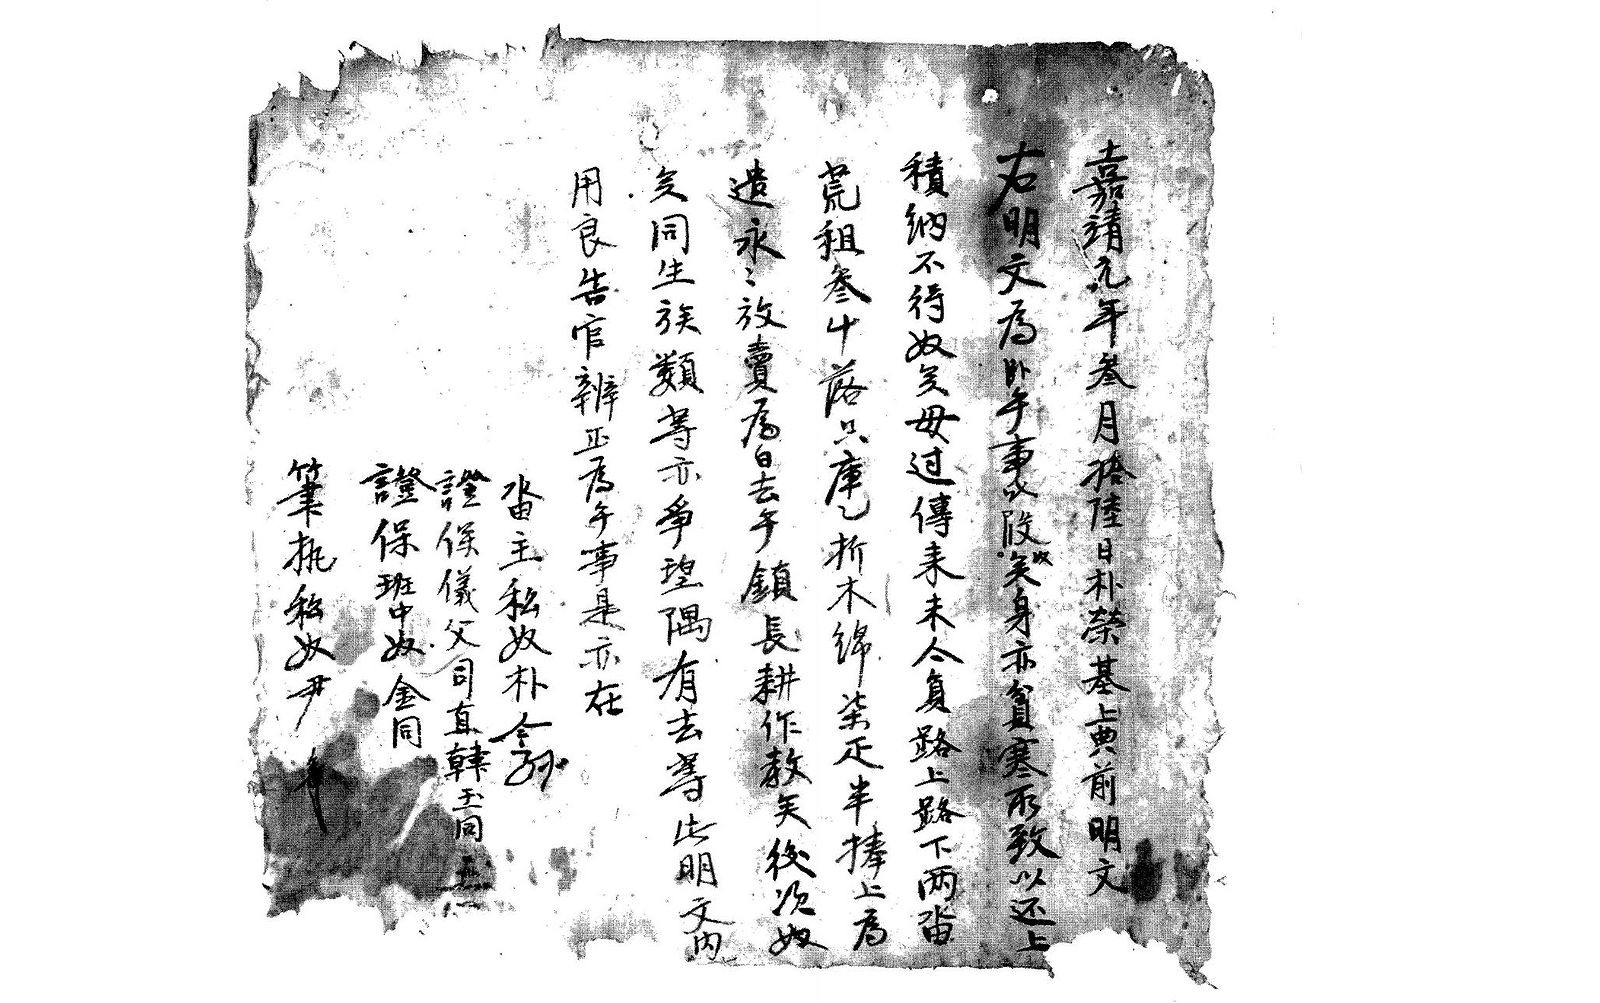 嘉靖元年叁月拾陸日朴榮基上典前明文
右明文爲臥乎事段矣身亦貧寒所致以还上
積納不得奴矣母过傳来未令員路上路下两畓
荒租叁斗落只庫乙折木綿柒疋半捧上爲
遣永〻放賣爲白去乎鎮長耕作教矣後次奴
矣同生族類等亦爭望隅有去等此明文內
用良告官辨正爲乎事是亦在
畓主私奴朴今孙
證保儀父司直韓玉同
證保班中奴金同
筆执私奴尹